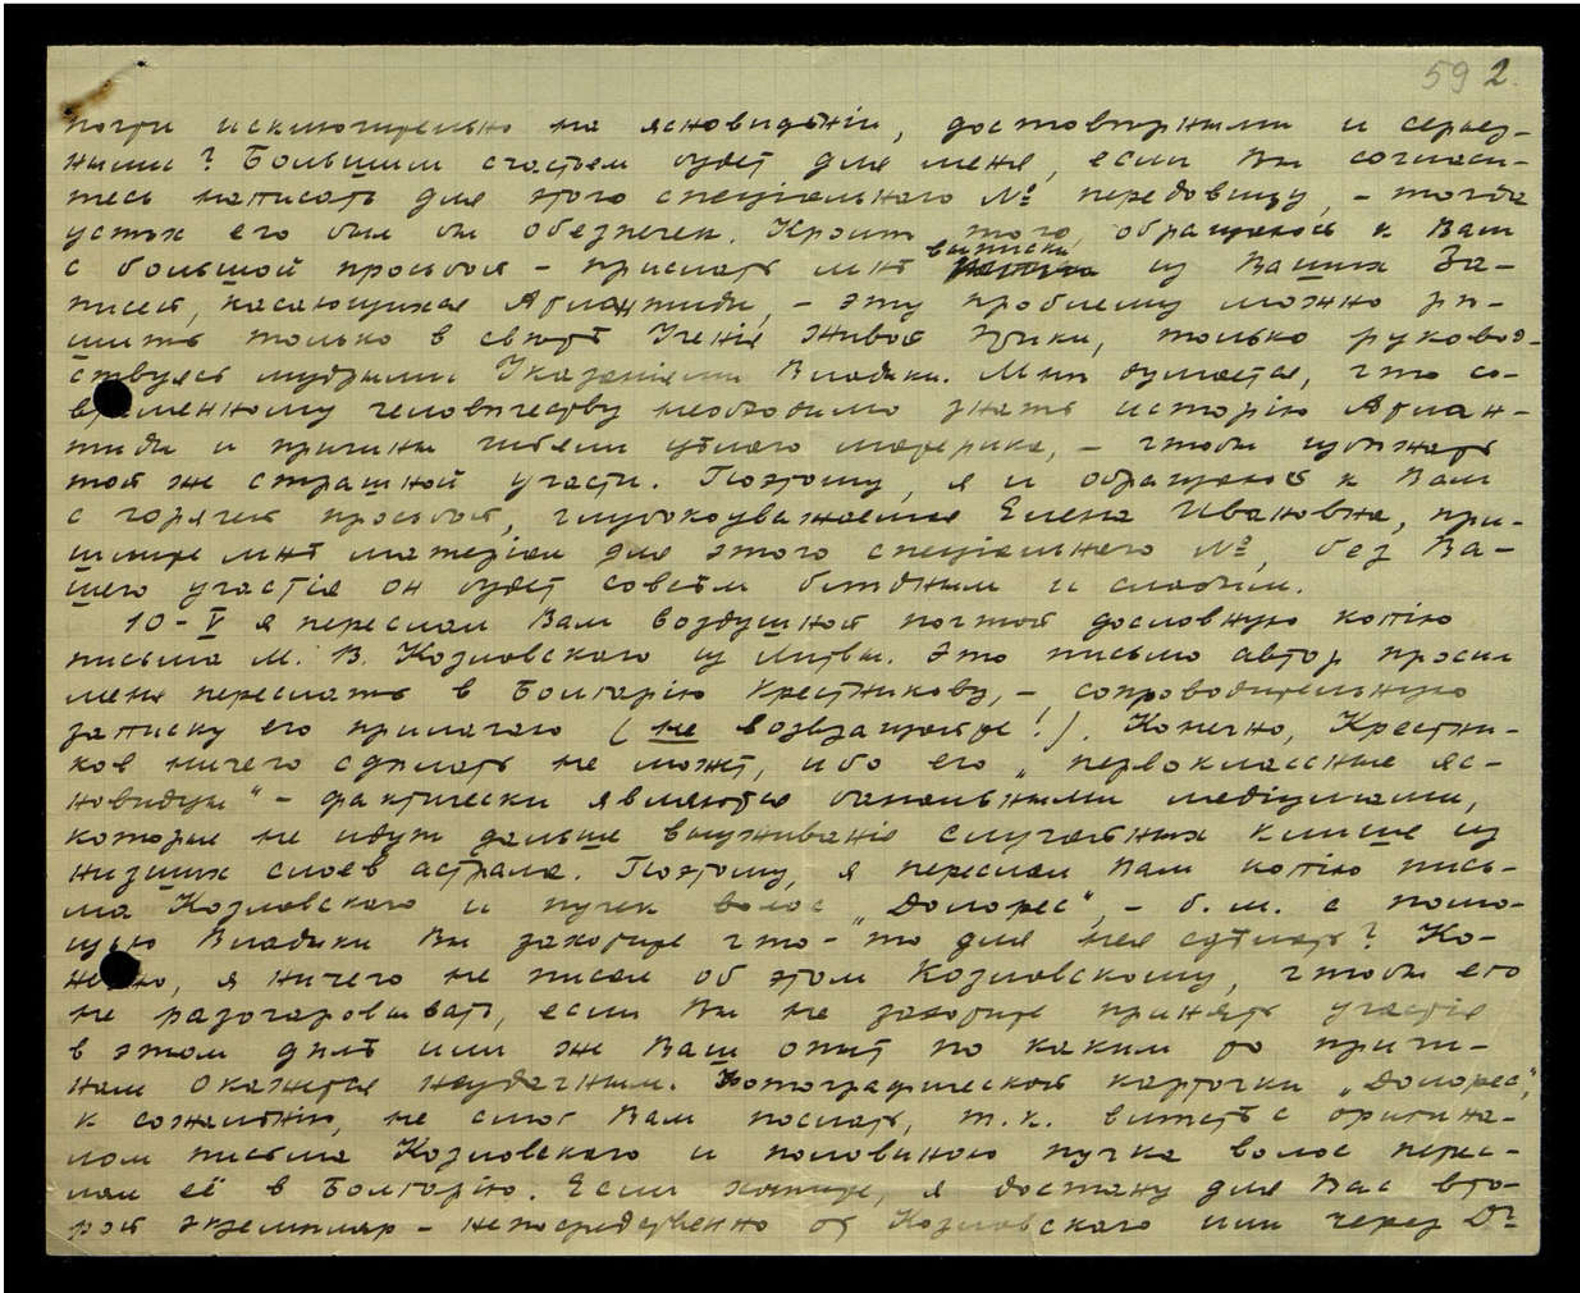 59 2.
почти исключительно на ясновидѣніи, достовѣрными и серьез-
ными? Большим счастьем будет для меня, если Вы согласи-
тесь написать для этого спеціальнаго № передовицу, – тогда
успѣх его был бы обезпечен. Кромѣ того, обращаюсь к Вам
выписки
с большой просьбой – прислать мнѣ из Ваших За-
писей, касающихся Атлантиды, – эту проблему можно рѣ-
шить только в свѣтѣ Ученія Живой Этики, только руковод-
ствуясь мудрыми Указаніями Владыки. Мнѣ думается, что со-
временному человѣчеству необходимо знать исторію Атлан-
тиды и причины гибели цѣлаго материка, – чтобы избѣжать
той же страшной участи. Поэтому, я и обращаюсь к Вам
с горячей просьбой, глубокоуважаемая Елена Ивановна, при-
шлите мнѣ матеріал для этого спеціальнаго №, без Ва-
шего участія он будет совсѣм блѣдным и слабым.
10-V я переслал Вам воздушной почтой дословную копію
письма М. В. Козловскаго из Литвы. Это письмо автор просил
меня переслать в Болгарію Крестникову, – сопроводительную
записку его прилагаю (не возвращайте!). Конечно, Крестни-
ков ничего сдѣлать не может, ибо его „первоклассные яс-
новидцы" – фактически являются банальными медіумами,
которые не идут дальше выуживанія случайных клише из
низших слоев астрала. Поэтому, я переслал Вам копію пись-
ма Козловскаго и пучек волос „Долорес", – б. м. с помо-
щью Владыки Вы захотите что-то для нея сдѣлать? Ко-
нечно, я ничего не писал об этом Козловскому, чтобы его
не разочаровывать, если Вы не захотите принять участія
в этом дѣлѣ или же Ваш опыт по каким то причи-
нам окажется неудачным. Фотографической карточки „Долорес",
к сожалѣнію, не смог Вам послать, т. к. вмѣстѣ с оригина-
лом письма Козловскаго и половиною пучка волос перес-
лал её в Болгарію. Если хотите, я достану для Вас вто-
рой экземпляр – непосредственно от Козловскаго или через Dr